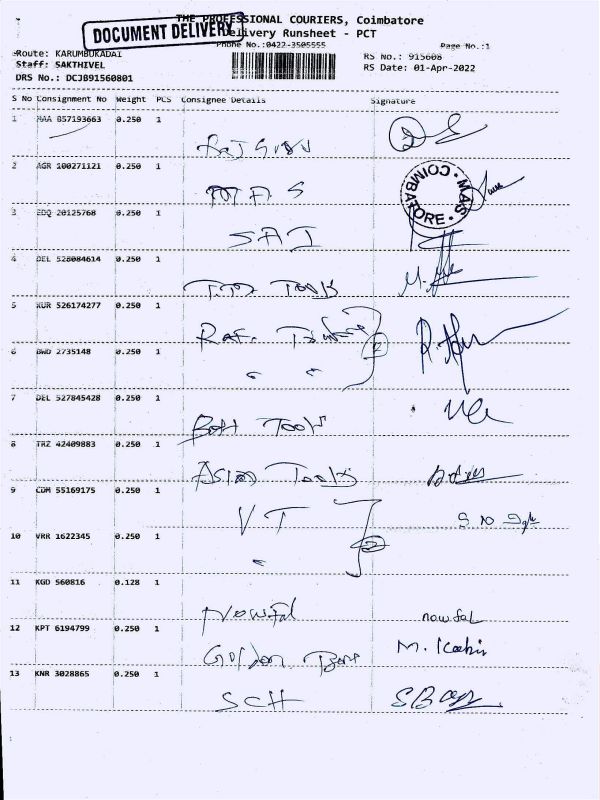 THE PROFESSIONAL COURIERS, Coimbatore
DOCUMENT DELIVERY
Delivery Runsheet - PCT
Phone No.:0422-3505555 Page No.:1
Route: KARUMBUKADAI RS No.: 915608
Staff: SAKTHIVEL RS Date: 01-Apr-2022
DRS No.: DCJB91560801
S No Consignment No Weight PCS Consignee Details Signature
1 MAA 857193663 0.250 1
2 AGR 100271121 0.250 1
MAS
COIMBATORE MAS
3 EDQ 20125768 0.250 1
SAI
4 DEL 528084614 0.250 1
Tools
5 KUR 526174277 0.250 1
6 BWD 2735148 0.250 1
7 DEL 527845428 0.250 1
Tools
8 TRZ 42409883 0.250 1
Asian Tools
9 CDM 55169175 0.250 1
VT
10 VRR 1622345 0.250 1
11 KGD 560816 0.128 1
Nowfal nowfal
12 KPT 6194799 0.250 1
M. Kabir
13 KNR 3028865 0.250 1
SCH